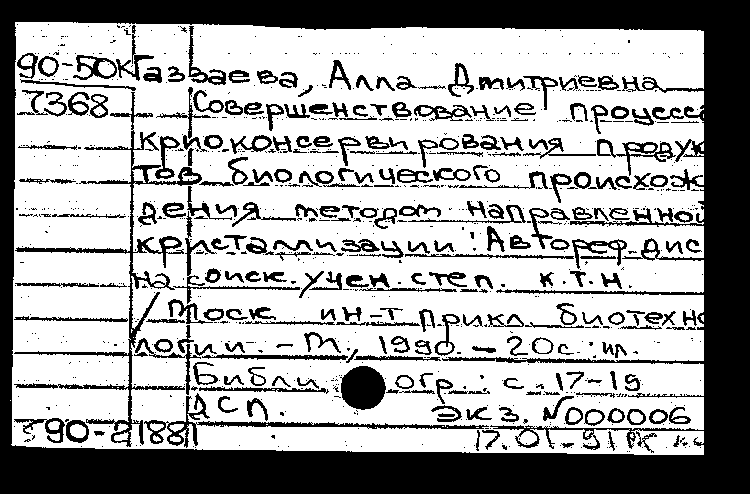 90-50К Газзаева, Алла Дмитриевна
7368 Совершенствование процесса
криоконсервирования продук
тов биологического происхож
дения методом направленной
кристаллизации : Автореф. дис
на соиск. учен. степ. к.т.н.
/ Моск. ин-т прикл. биотехно
логии. - М., 1990. - 20с : ил.
Библиогр.: с. 17-19
ДСП. экз. №000006
90-21881 17.01-91 РК